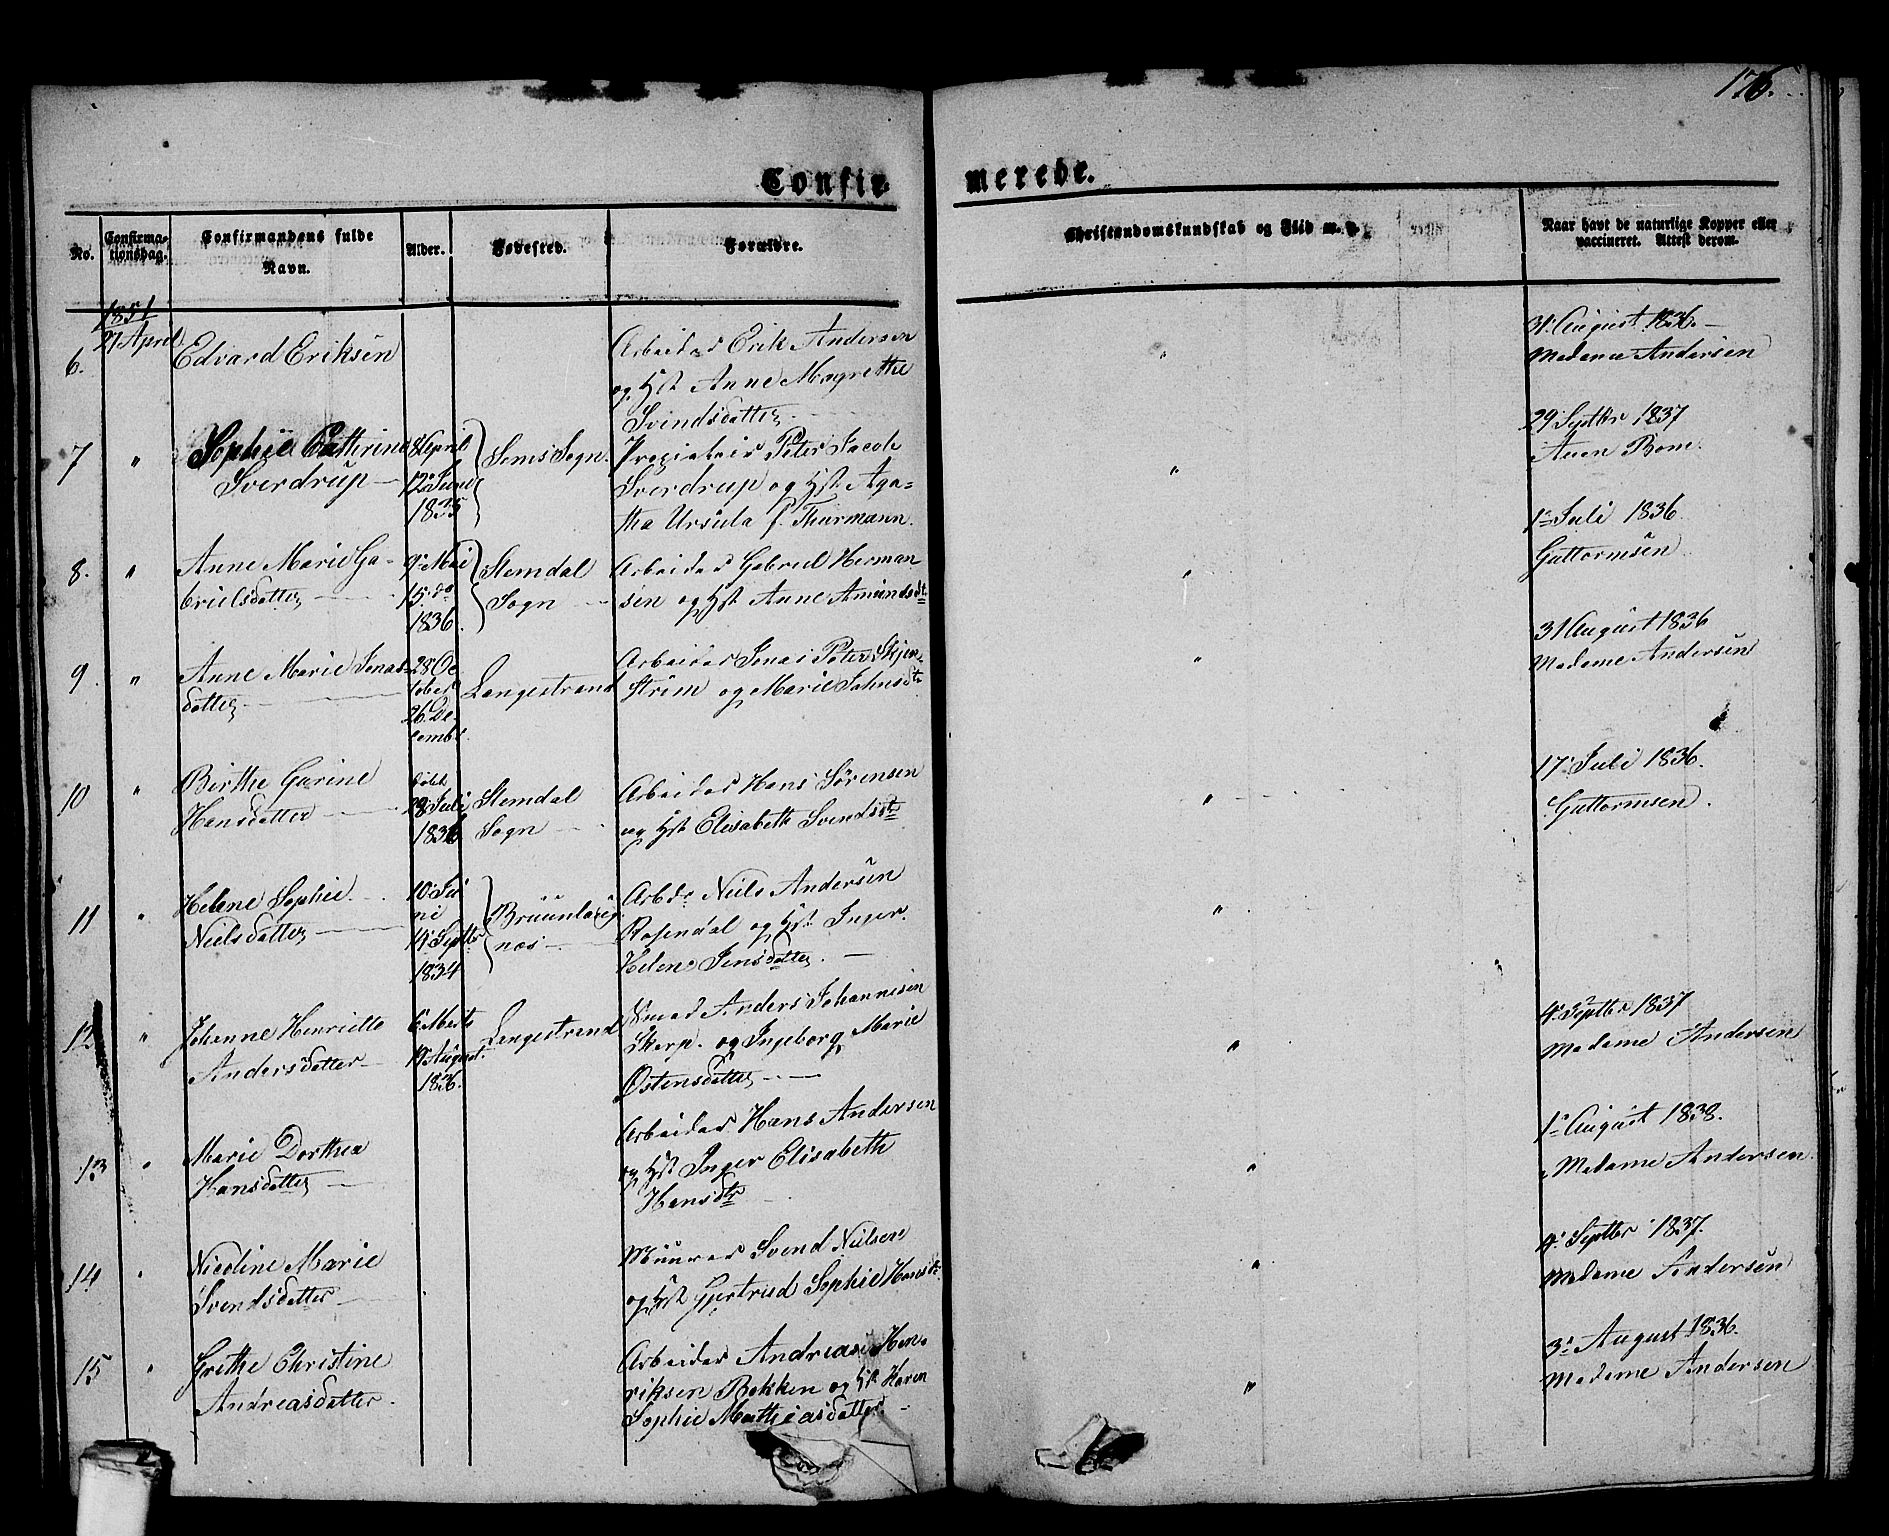 176.
Confir merede.
No.
Confirma-
tionsdag.
Confirmandens fulde
Navn.
Alder.
Fødested.
Forældre.
Christendomskundskab og Flid m. v.
Naar havt de naturlige Kopper eller
vaccineret. Attest derom.
1851
27 April
6.
Edvard Eriksen
Arbeider Erik Andersen
og Hst Anne Magrethe
Svindsdatter
31 August 1836.
Madame Andersen
7
"
Sophie Cathrine
Sverdrup
8 April
12 Juni
1835
Sems Sogn.
Peter Jacob
Sverdrup og Hst Aga-
tha Ursula f. Thurmann.
"
29 Septbr 1837
Auen Bom.
8.
"
Anne Marie Ga-
brielsdatter
9 Mai
15 do
1836.
Slemdal
Sogn
Arbeider Gabriel Herman
sen og Hst Anne Amundsdt.
"
1 Juli 1836.
Guttormsen
9.
"
Anne Marie Jonas-
datter
28 Oc
tober
26 De-
cembr.
Langestrand
Arbeider Jonas Peter Skjen-
strøm og Marie Johnsdt.
"
31 August 1836
Madame Andersen
10
"
Birthe Gurine
Hansdatter
28 Juli
1836
Slemdal
Sogn
Arbeider Hans Sørensen
og Hst Elisabeth Svendsdt
"
17 Juli 1836.
Guttormsen.
11
"
Helene Sophie
Nielsdatter
10 Ju
ni
14 Septbr
1834
Bruunlaug
næs
Arbdr Niels Andersen
Rosendal og Hst Inger
Helene Jensdatter.
"
12
"
Johanne Henriette
Andersdatter
6 Marts
19 August.
1836.
Langestrand
Anders Johannesen
Skarp. og Ingeborg Marie
Ostensdatter
"
4 Septbr 1837
Madame Andersen
13
"
Marie Dorthea
Hansdatter
Arbeider Hans Andersen
og Hst Inger Elisabeth
Hansdtr
"
1 August 1838.
Madame Andersen.
14
"
Nicoline Marie
Svendsdatter
Muurer Svend Nielsen
og Hst Gjertrud Sophie Hansdr.
"
4 Septbr 1837.
Madame Andersen
15
"
Grethe Christine
Andreasdatter.
Arbeider Andreas Hen-
riksen Bakken og Hst Karen
Sophie Mathiasdatter.
"
3 August 1836.
Madame Andersen